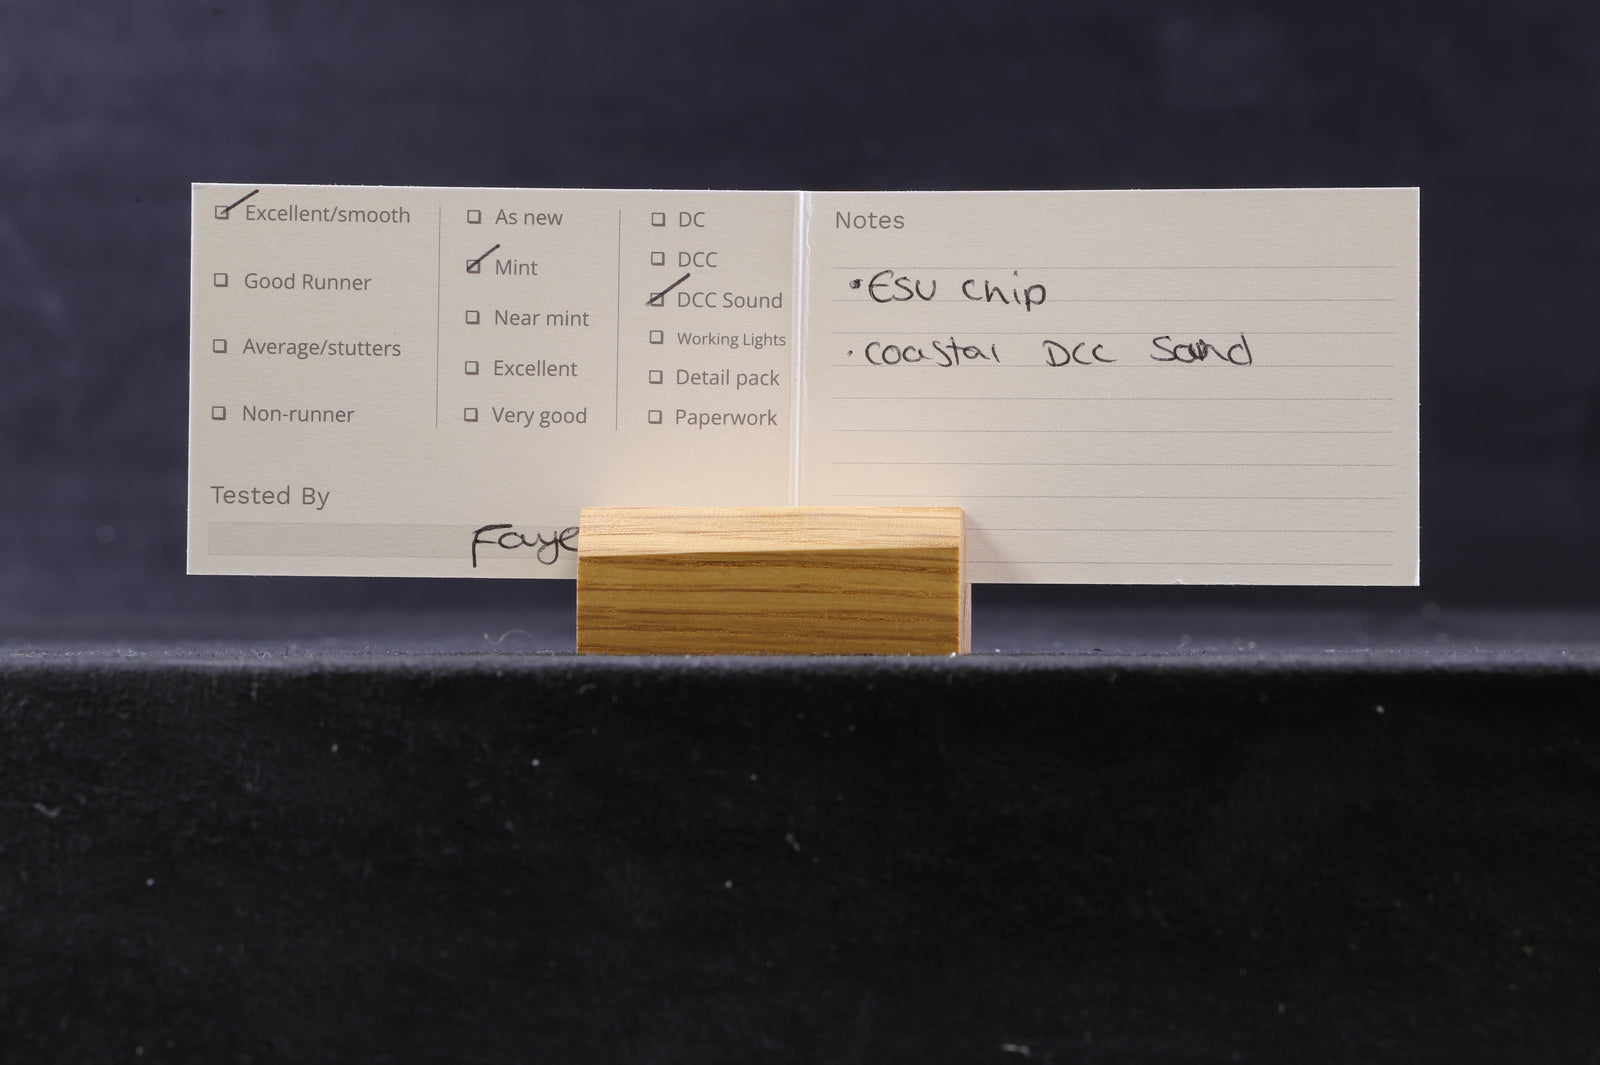 Excellent/smooth
Good Runner
Average/stutters
Non-runner
As new
Mint
Near mint
Excellent
Very good
DC
DCC
DCC Sound
Working Lights
Detail pack
Paperwork
Tested By
Faye
Notes
•ESU chip
•coastal DCC Sound